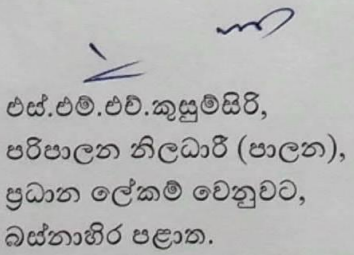 එස්.එම්.එච්.කුසුම්සිරි,
පරිපාලන නිලධාරී (පාලන),
ප්‍රධාන ලේකම් වෙනුවට,
බස්නාහිර පළාත.